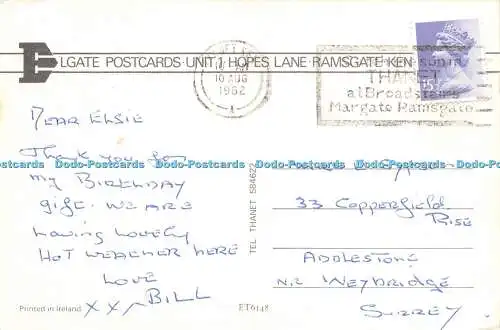 ELGATE POSTCARDS · UNIT 1 HOPES LANE · RAMSGATE · KEN
10 AUG
1982
THANET
at Broadstairs
Margate Ramsgate
DEAR ELSIE
Thank you for
my BIRTHDAY
gift. WE ARE
having lovely
HOT WEATHER HERE
LOVE
XX BILL
33 Copperfield
Rise
ADDLESTONE
Nr WEYBRIDGE
SURREY
TEL THANET 58462
Printed in Ireland
ET6148
Dodo-Postcards Dodo-Postcards Dodo-Postcards Dodo-Postcards Dodo-Postcards Dodo-Postcards